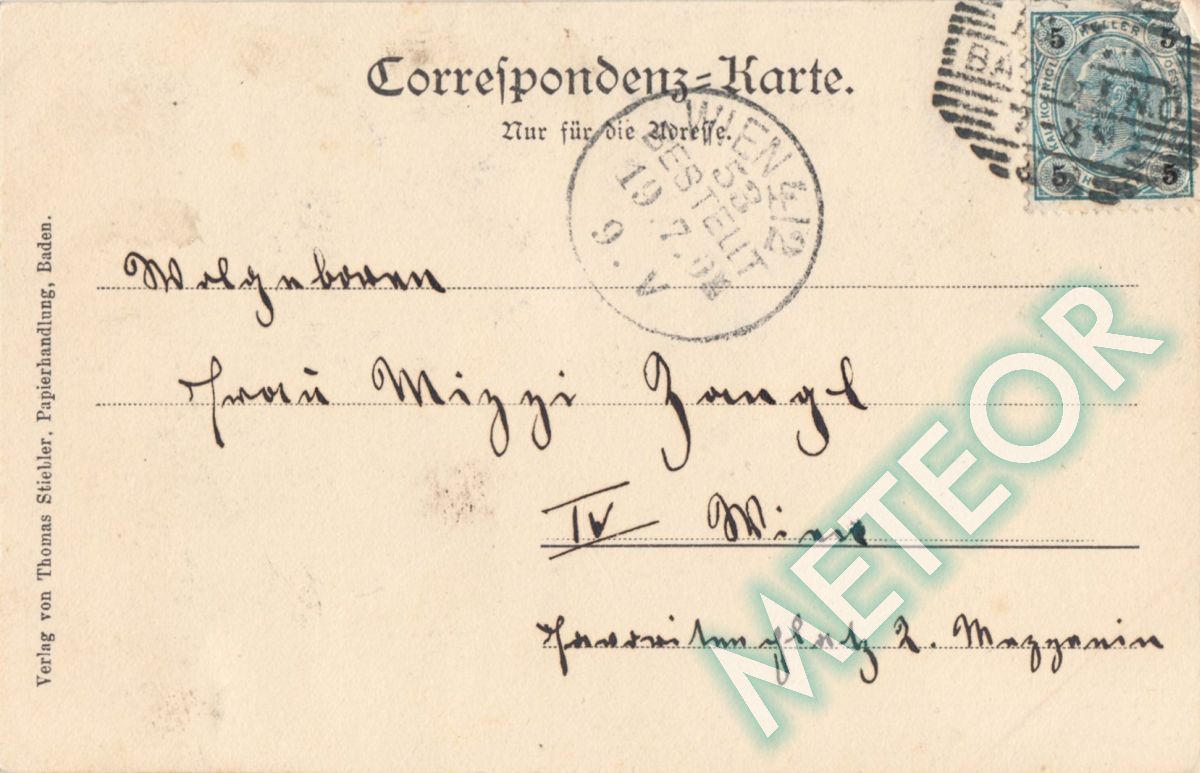 Correspondenz-Karte.
Nur für die Adresse.
WIEN 4/2
53
BESTELLT
19.7.
9.V
5 HELLER 5
5 5
BA
Wolgeboren
Frau Mizzi Zangl
IV Wien
Favoritenplatz 2. Mezzanin
Verlag von Thomas Stiebler, Papierhandlung, Baden.
METEOR